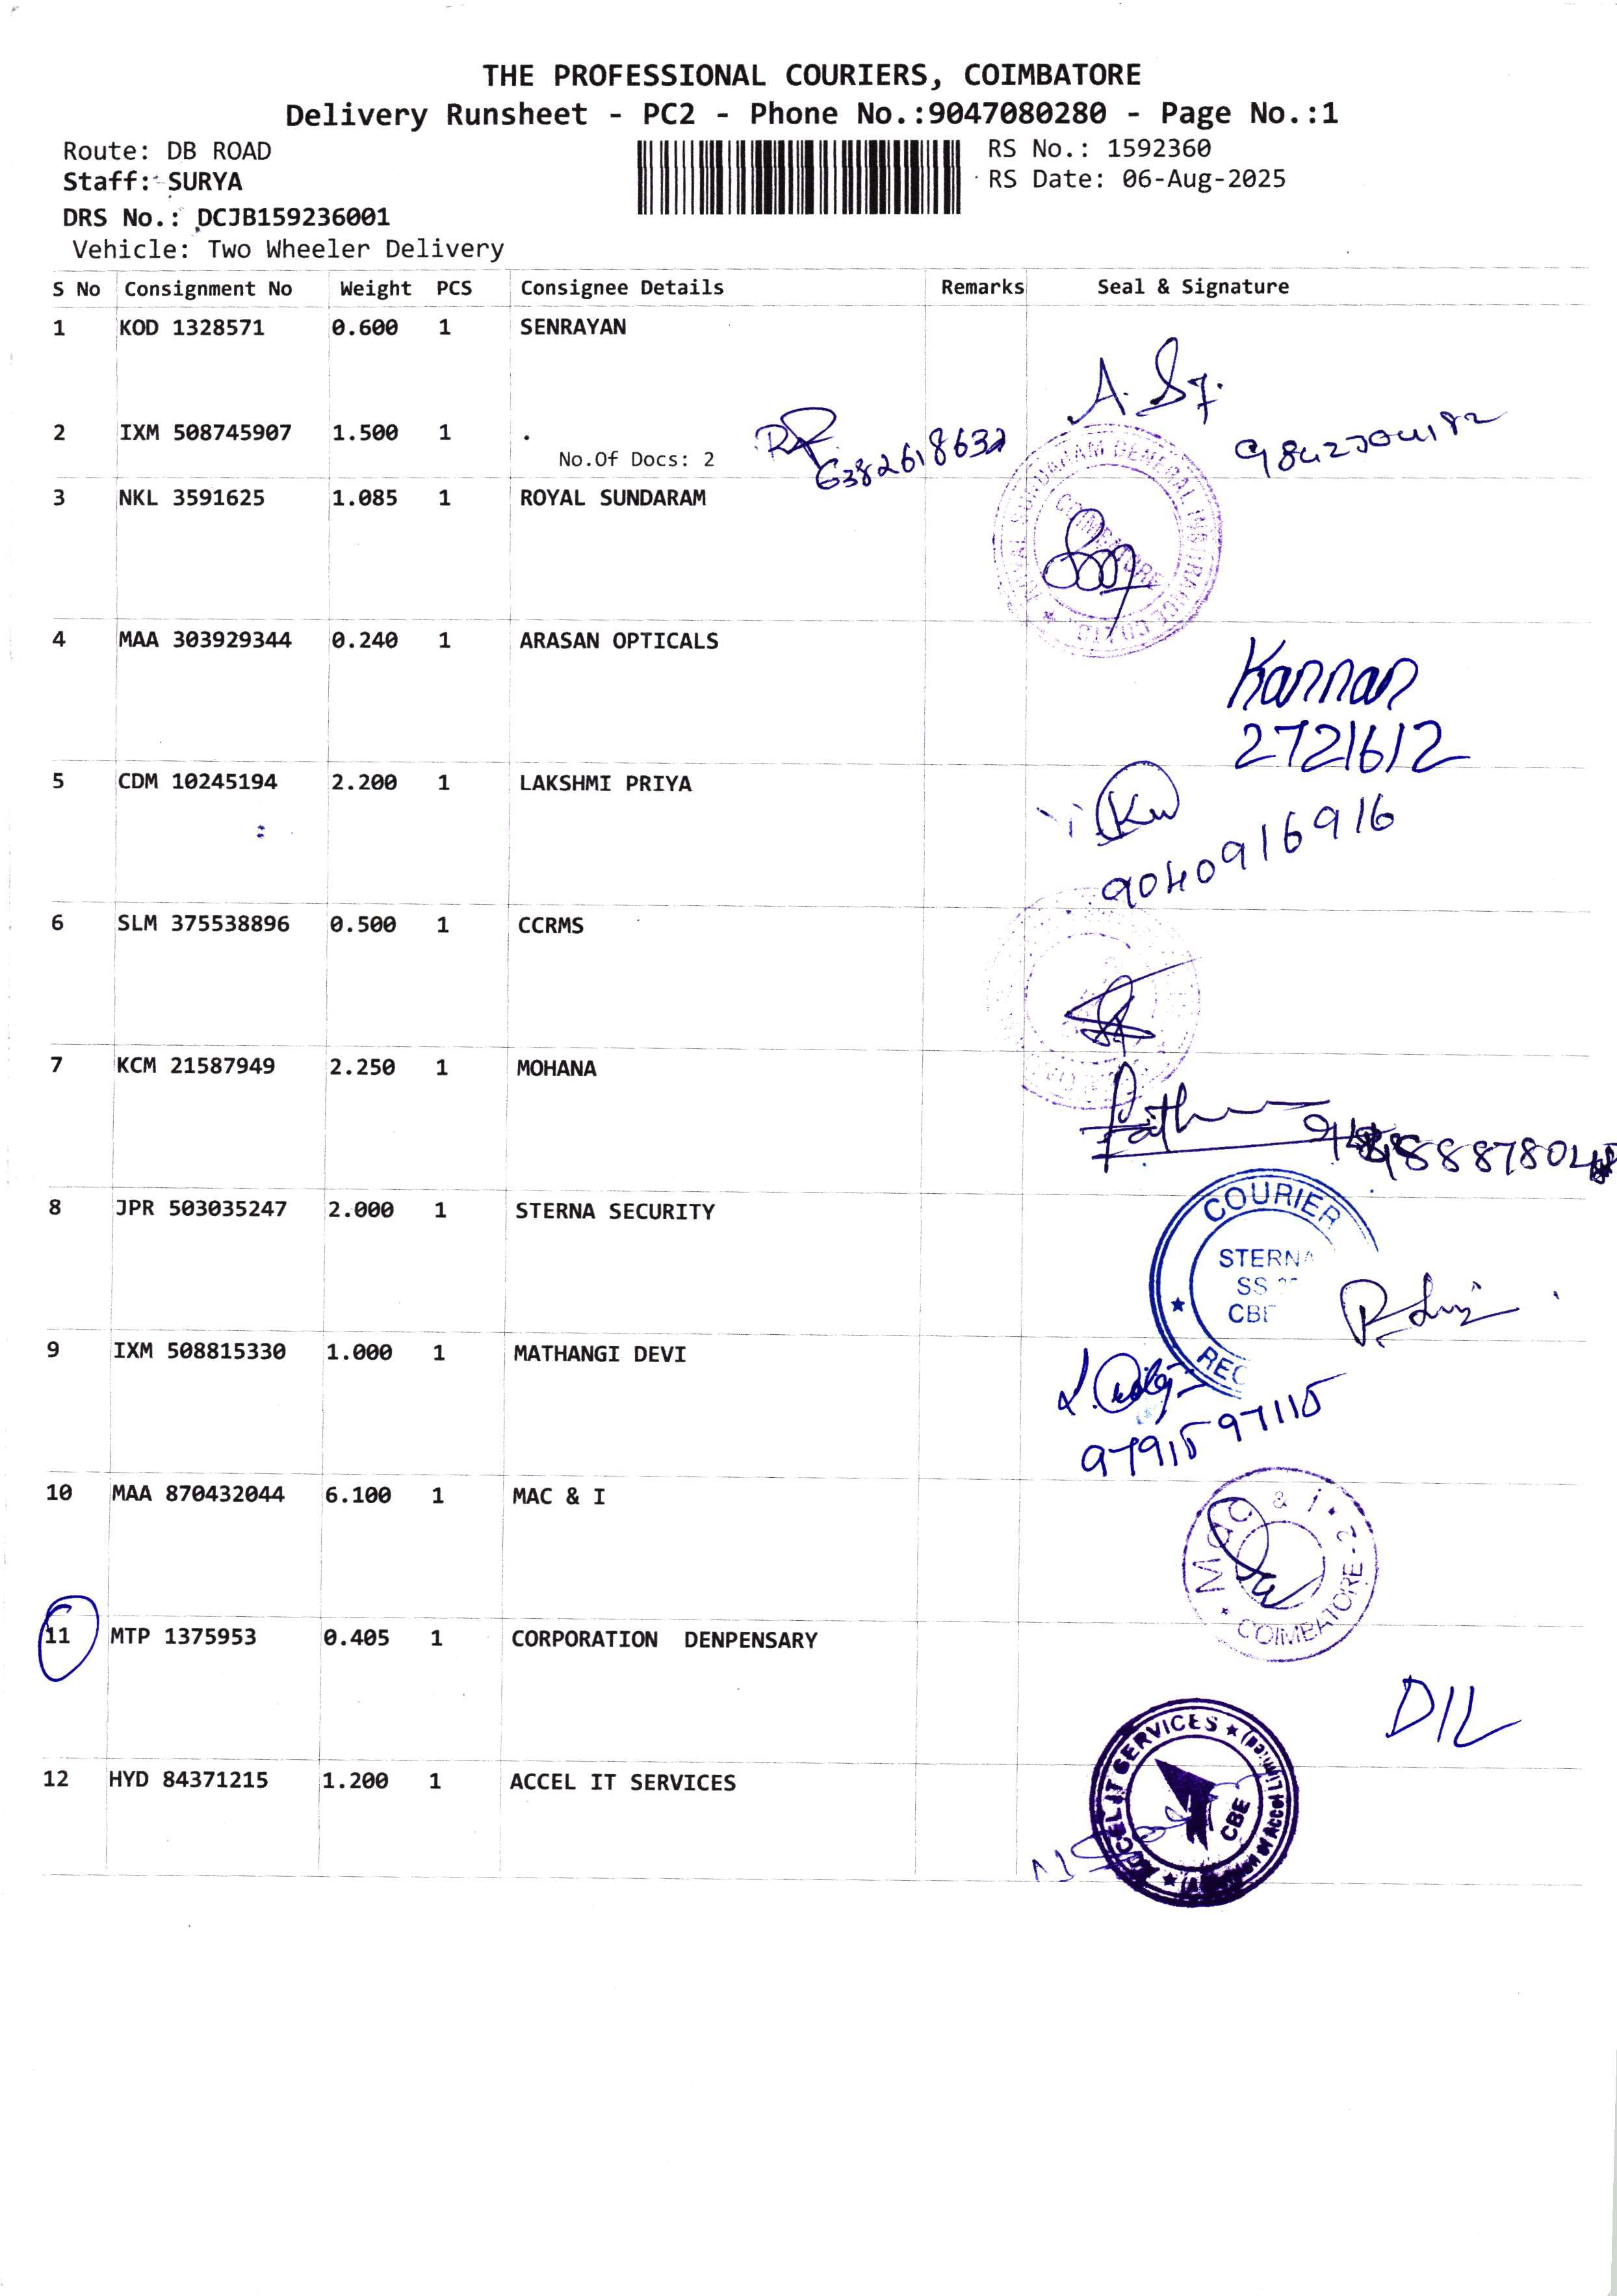 THE PROFESSIONAL COURIERS, COIMBATORE
Delivery Runsheet - PC2 - Phone No.:9047080280 - Page No.:1
Route: DB ROAD
RS No.: 1592360
Staff: SURYA
RS Date: 06-Aug-2025
DRS No.: DCJB159236001
Vehicle: Two Wheeler Delivery
S No Consignment No Weight PCS Consignee Details Remarks Seal & Signature
1 KOD 1328571 0.600 1 SENRAYAN
2 IXM 508745907 1.500 1 .
No.Of Docs: 2
6382618632
3 NKL 3591625 1.085 1 ROYAL SUNDARAM
COIMBATORE
4 MAA 303929344 0.240 1 ARASAN OPTICALS
Kannan
2721612
5 CDM 10245194 2.200 1 LAKSHMI PRIYA
9040916916
6 SLM 375538896 0.500 1 CCRMS
7 KCM 21587949 2.250 1 MOHANA
8 JPR 503035247 2.000 1 STERNA SECURITY
COURIER
STERNA
SS
9 IXM 508815330 1.000 1 MATHANGI DEVI
9791597115
10 MAA 870432044 6.100 1 MAC & I
MAC & I
COIMBATORE-2
11 MTP 1375953 0.405 1 CORPORATION DENPENSARY
DIL
12 HYD 84371215 1.200 1 ACCEL IT SERVICES
ACCEL IT SERVICES
CBE